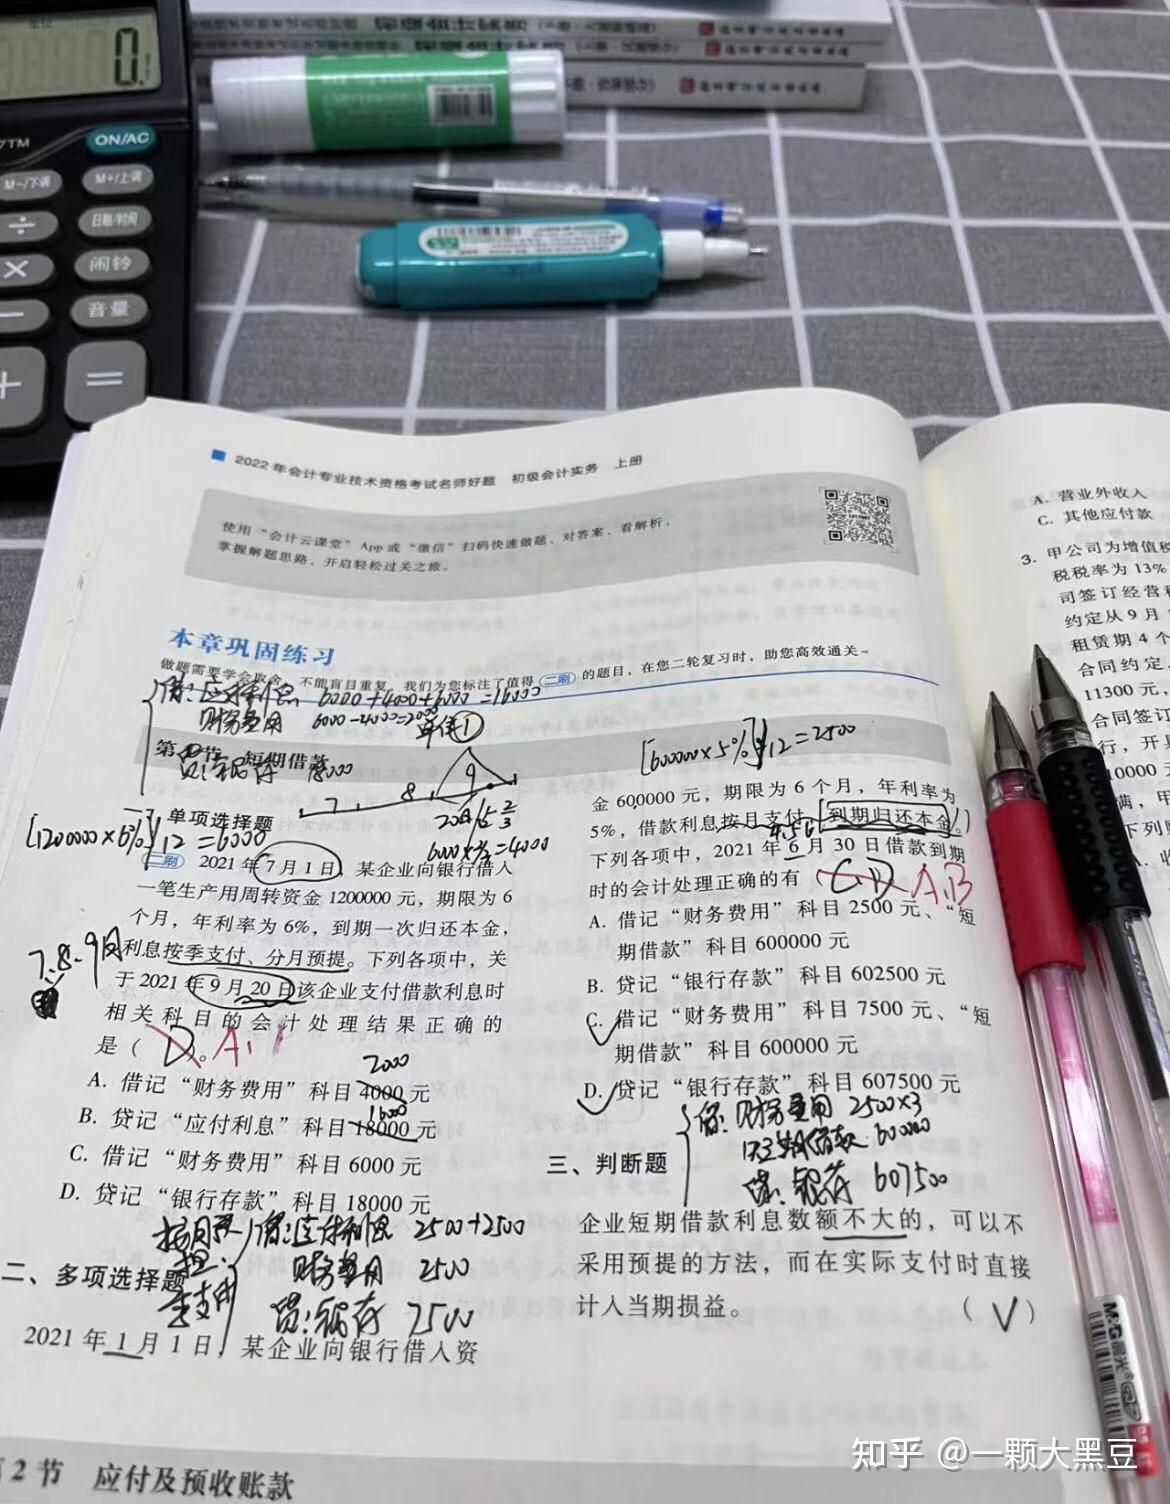 0.
7TM
ON/AC
M-/下调
M+/上调
÷
日期/时间
×
闹铃
−
音量
+
=
2022 年会计专业技术资格考试名师好题 初级会计实务 上册
使用“会计云课堂”App 或“微信”扫码快速做题、对答案、看解析，
掌握解题思路，开启轻松过关之旅。
本章巩固练习
做题需要学会取舍，不能盲目重复，我们为您标注了值得 二刷 的题目，在您二轮复习时，助您高效通关~
借：应付利息 6000+4000+6000=16000
财务费用 6000-4000=2000
单位①
短期借款
贷：银存 18000
7 8 9
[1200000×6%]/12=6000
单项选择题
二刷 2021 年 7 月 1 日，某企业向银行借入
一笔生产用周转资金 1200000 元，期限为 6
个月，年利率为 6%，到期一次归还本金，
7、8、9月
利息按季支付、分月预提。下列各项中，关
于 2021 年 9 月 20 日该企业支付借款利息时
相关科目的会计处理结果正确的
是（ D ）。 A
2000
A. 借记“财务费用”科目 4000 元
16000
B. 贷记“应付利息”科目 18000 元
C. 借记“财务费用”科目 6000 元
D. 贷记“银行存款”科目 18000 元
借：应付利息 2500+2500
财务费用 2500
贷：银存 7500
二、多项选择题
2021 年 1 月 1 日，某企业向银行借入资
2 节 应付及预收账款
[600000×5%]/12=2500
金 600000 元，期限为 6 个月，年利率为
5%，借款利息按月支付，到期归还本金。
下列各项中，2021 年 6 月 30 日借款到期
时的会计处理正确的有（ CD A,B
A. 借记“财务费用”科目 2500 元、“短
期借款”科目 600000 元
B. 贷记“银行存款”科目 602500 元
C. 借记“财务费用”科目 7500 元、“短
期借款”科目 600000 元
D. 贷记“银行存款”科目 607500 元
借：财务费用 2500×3
短期借款 600000
贷：银存 607500
三、判断题
企业短期借款利息数额不大的，可以不
采用预提的方法，而在实际支付时直接
计入当期损益。 （ √ ）
A. 营业外收入
C. 其他应付款
3. 甲公司为增值税
税税率为 13%
司签订经营租
约定从 9 月
租赁期 4 个
合同约定，
11300 元，
合同签订
行，开具
10000 元
满，甲
下列
M&G晨光
知乎 @一颗大黑豆